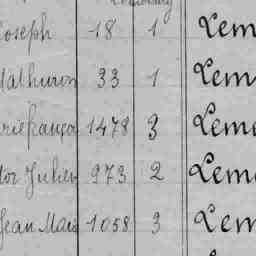 Joseph 18 1 Lem
Mathurin 33 1 Lem
1478 3 Leme
Julien 973 2 Leme
Jean Marie 1058 3 Lem